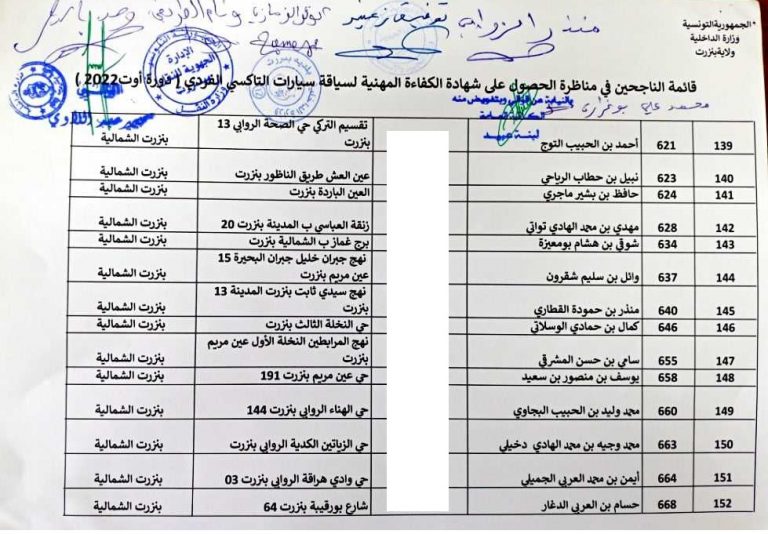 الجمهورية التونسية
وزارة الداخلية
ولاية بنزرت
قائمة الناجحين في مناظرة الحصول على شهادة الكفاءة المهنية لسياقة سيارات التاكسي الفردي ( دورة أوت 2022 )
139 621 أحمد بن الحبيب التوج تقسيم التركي حي الصحة الروابي 13 بنزرت بنزرت الشمالية
140 623 نبيل بن حطاب الرياحي عين العش طريق الناظور بنزرت بنزرت الشمالية
141 624 حافظ بن بشير ماجري العين الباردة بنزرت بنزرت الشمالية
142 628 مهدي بن محمد الهادي تواتي زنقة العباسي ب المدينة بنزرت 20 بنزرت الشمالية
143 634 شوقي بن هشام بومعيزة برج غماز ب الشمالية بنزرت بنزرت الشمالية
144 637 وائل بن سليم شقرون نهج جبران خليل جبران البحيرة 15 عين مريم بنزرت بنزرت الشمالية
145 640 منذر بن حمودة القطاري نهج سيدي ثابت بنزرت المدينة 13 بنزرت بنزرت الشمالية
146 646 كمال بن حمادي الوسلاتي حي النخلة الثالث بنزرت بنزرت الشمالية
147 655 سامي بن حسن المشرقي نهج المرابطين النخلة الأول عين مريم بنزرت بنزرت الشمالية
148 658 يوسف بن منصور بن سعيد حي عين مريم بنزرت 191 بنزرت الشمالية
149 660 محمد وليد بن الحبيب البجاوي حي الهناء الروابي بنزرت 144 بنزرت الشمالية
150 663 محمد وجيه بن محمد الهادي دخيلي حي الزياتين الكدية الروابي بنزرت بنزرت الشمالية
151 664 أيمن بن محمد العربي الجميلي حي وادي هراقة الروابي بنزرت 03 بنزرت الشمالية
152 668 حسام بن العربي الدغار شارع بورقيبة بنزرت 64 بنزرت الشمالية